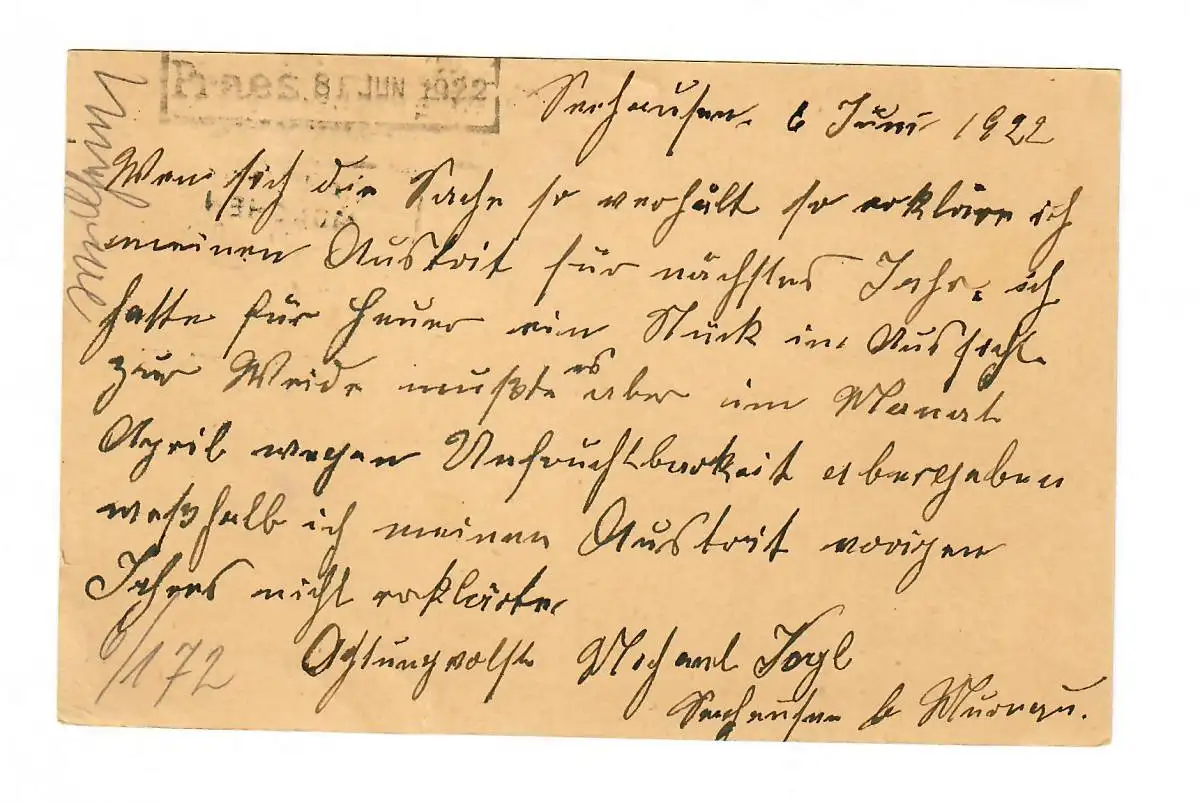 Praes. 8. JUN 1922
Seehausen, 6 Juni 1922
Wen sich die Sache so verhält so erkläre ich
meinen Austrit für nächstes Jahr. ich
hatte für Heuer ein Stück in Aussicht
zur Weide mußte es aber im Monat
April wegen Unfruchtbarkeit abergeben
weßhalb ich meinen Austrit vorigen
Jahres nicht erklärte.
Achtungvolst Michael
Seehausen b Murnau.
/172